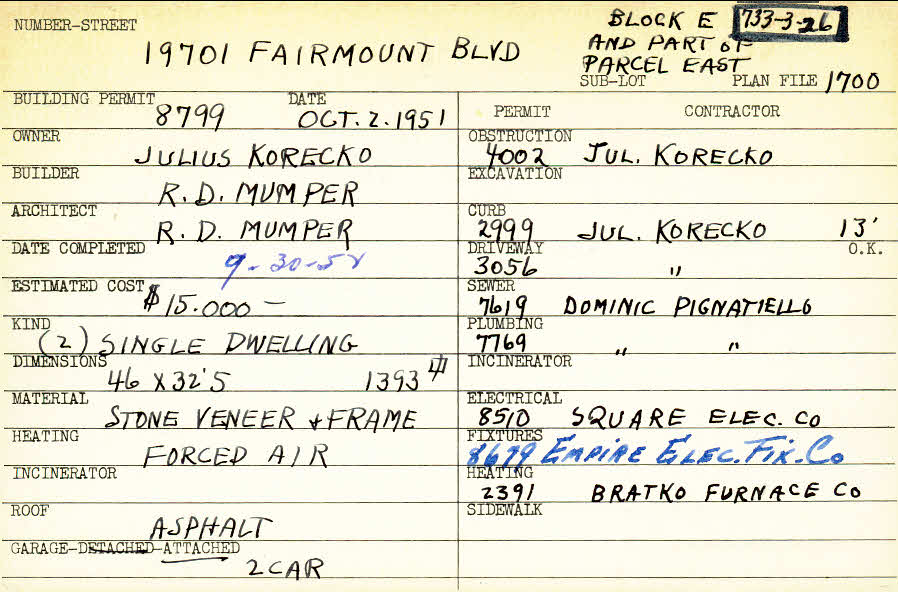 NUMBER-STREET
19701 FAIRMOUNT BLVD
BLOCK E 733-3-26
AND PART OF
PARCEL EAST
SUB-LOT PLAN FILE 1700
BUILDING PERMIT DATE
8799 OCT. 2. 1951
OWNER
JULIUS KORECKO
BUILDER
R. D. MUMPER
ARCHITECT
R. D. MUMPER
DATE COMPLETED
9-30-52
ESTIMATED COST
$15.000 —
KIND
(2) SINGLE DWELLING
DIMENSIONS
46 X 32'5 1393
MATERIAL
STONE VENEER + FRAME
HEATING
FORCED AIR
INCINERATOR
ROOF
ASPHALT
GARAGE-DETACHED-ATTACHED
2 CAR
PERMIT CONTRACTOR
OBSTRUCTION
4002 JUL. KORECKO
EXCAVATION
CURB
2999 JUL. KORECKO 13'
DRIVEWAY O.K.
3056 "
SEWER
7619 DOMINIC PIGNATIELLO
PLUMBING
7769 " "
INCINERATOR
ELECTRICAL
8510 SQUARE ELEC. CO
FIXTURES
8679 EMPIRE ELEC. FIX. CO
HEATING
2391 BRATKO FURNACE CO
SIDEWALK